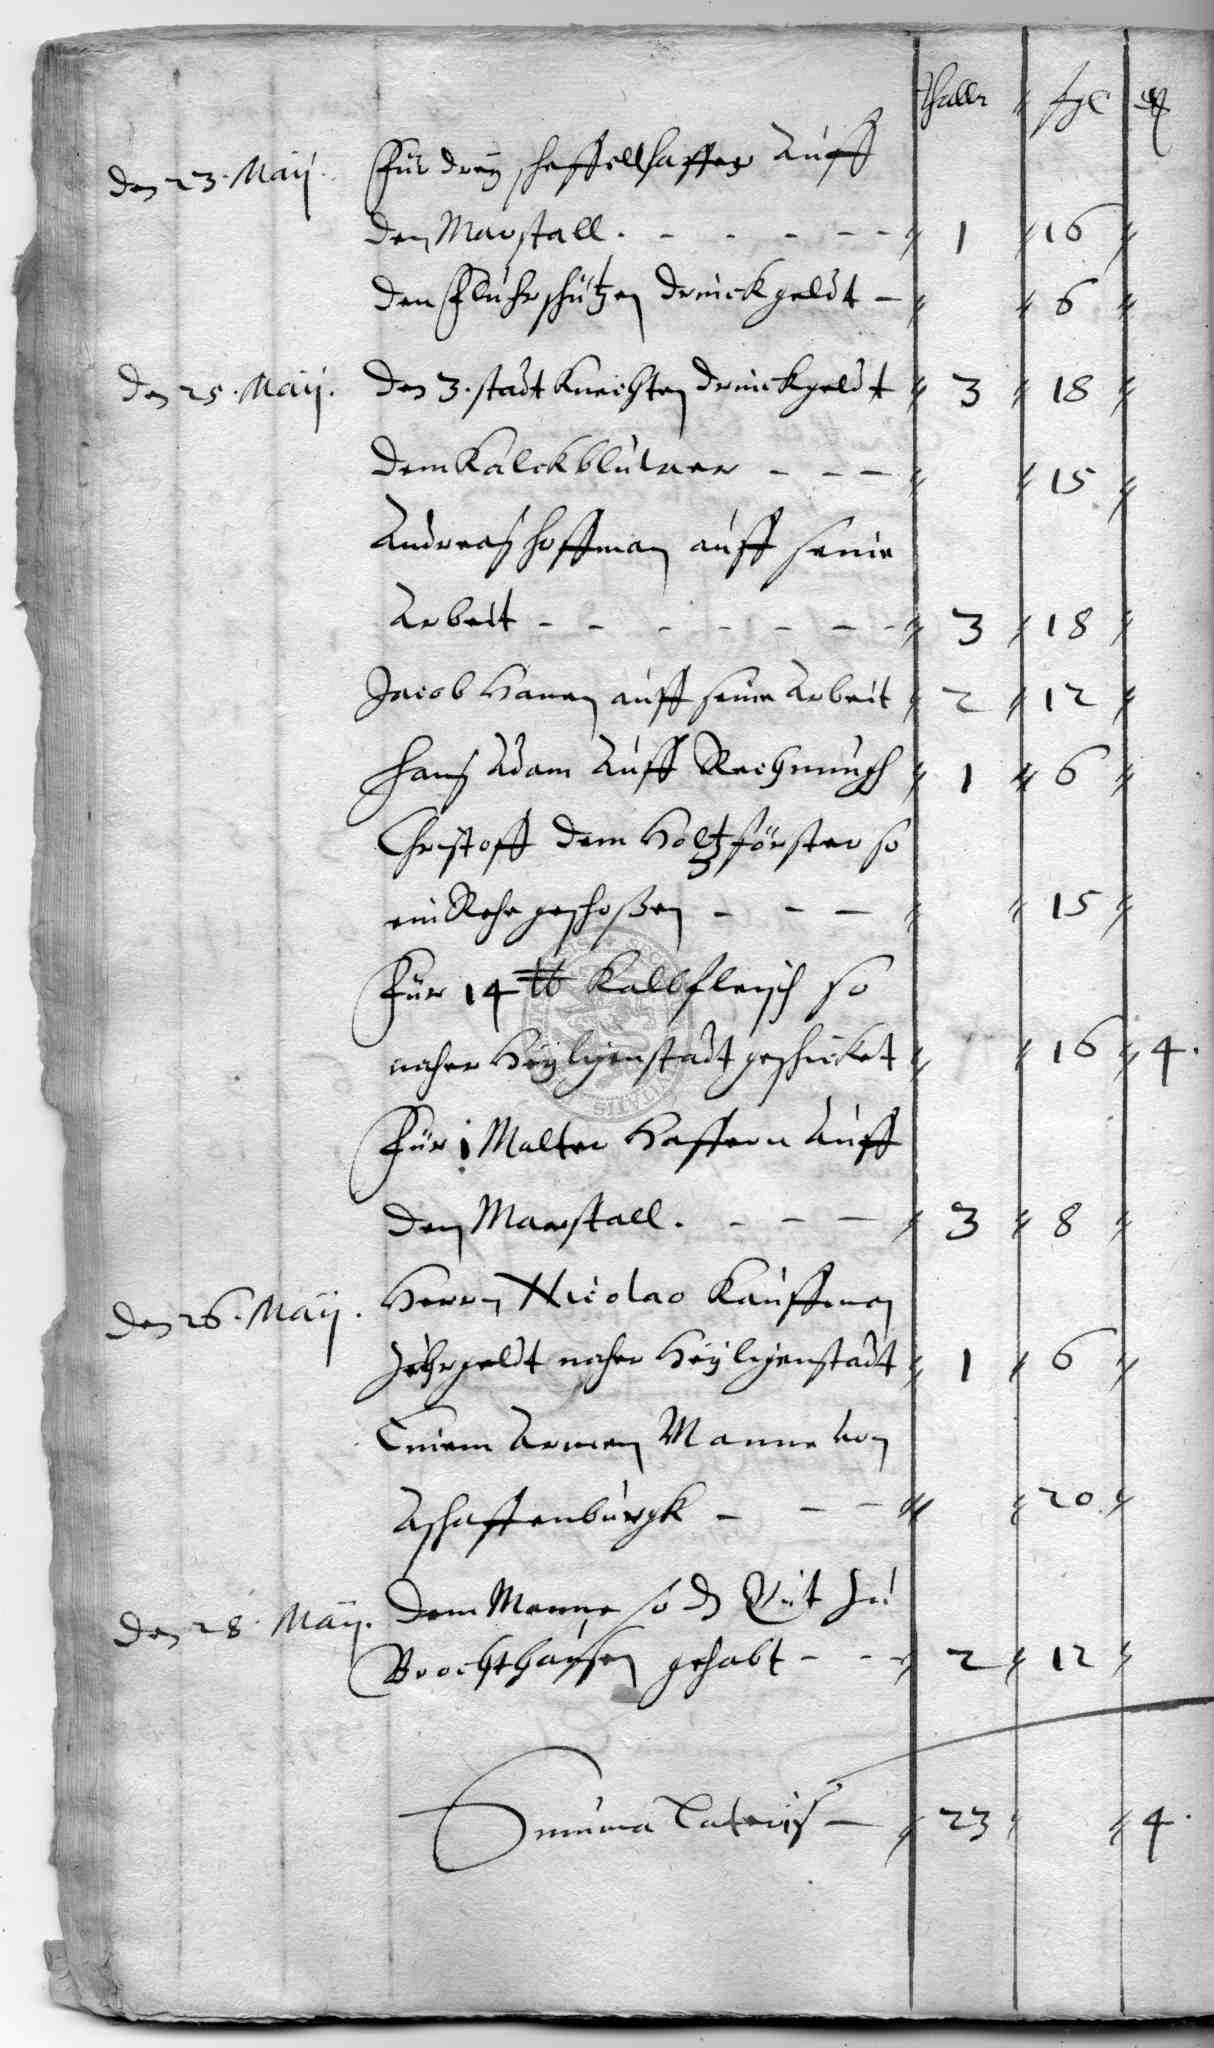 Thaller sgl ₰
den 23. Maij. Für dreÿ scheffell haffer Auff
den Marstall. - - - - - - 1 16
den Fluhrschützen drinckgeldt - 6
den 25. Maij. den 3. stadt Knechten drinckgeldt 3 18
dem Kalck - - - 15
Andreas Hoffman auff seine
Arbeit - - - - - - - 3 18
Jacob Hanen auff seine Arbeit 2 12
Hans Adam Auff Rechnungh 1 6
Christoff dem Holtzförster so
ein Rehe geschoßen - - - 15
Für 14 ℔ Kalbfleisch so
naher Heÿligenstadt geschicket 16 4.
Für 1 Malter Haffern Auff
den Marstall. - - - 3 8
den 26. Maij. Herrn Nicolao Kauffman
Zehrgeldt naher Heÿligenstadt 1 6
Einem Armen Manne von
Aschaffenburgk - - - 20
den 28. Maij. dem Manne so zu
Brochthausen gehabt - - - 2 12
Summa Lateris - 23 4.